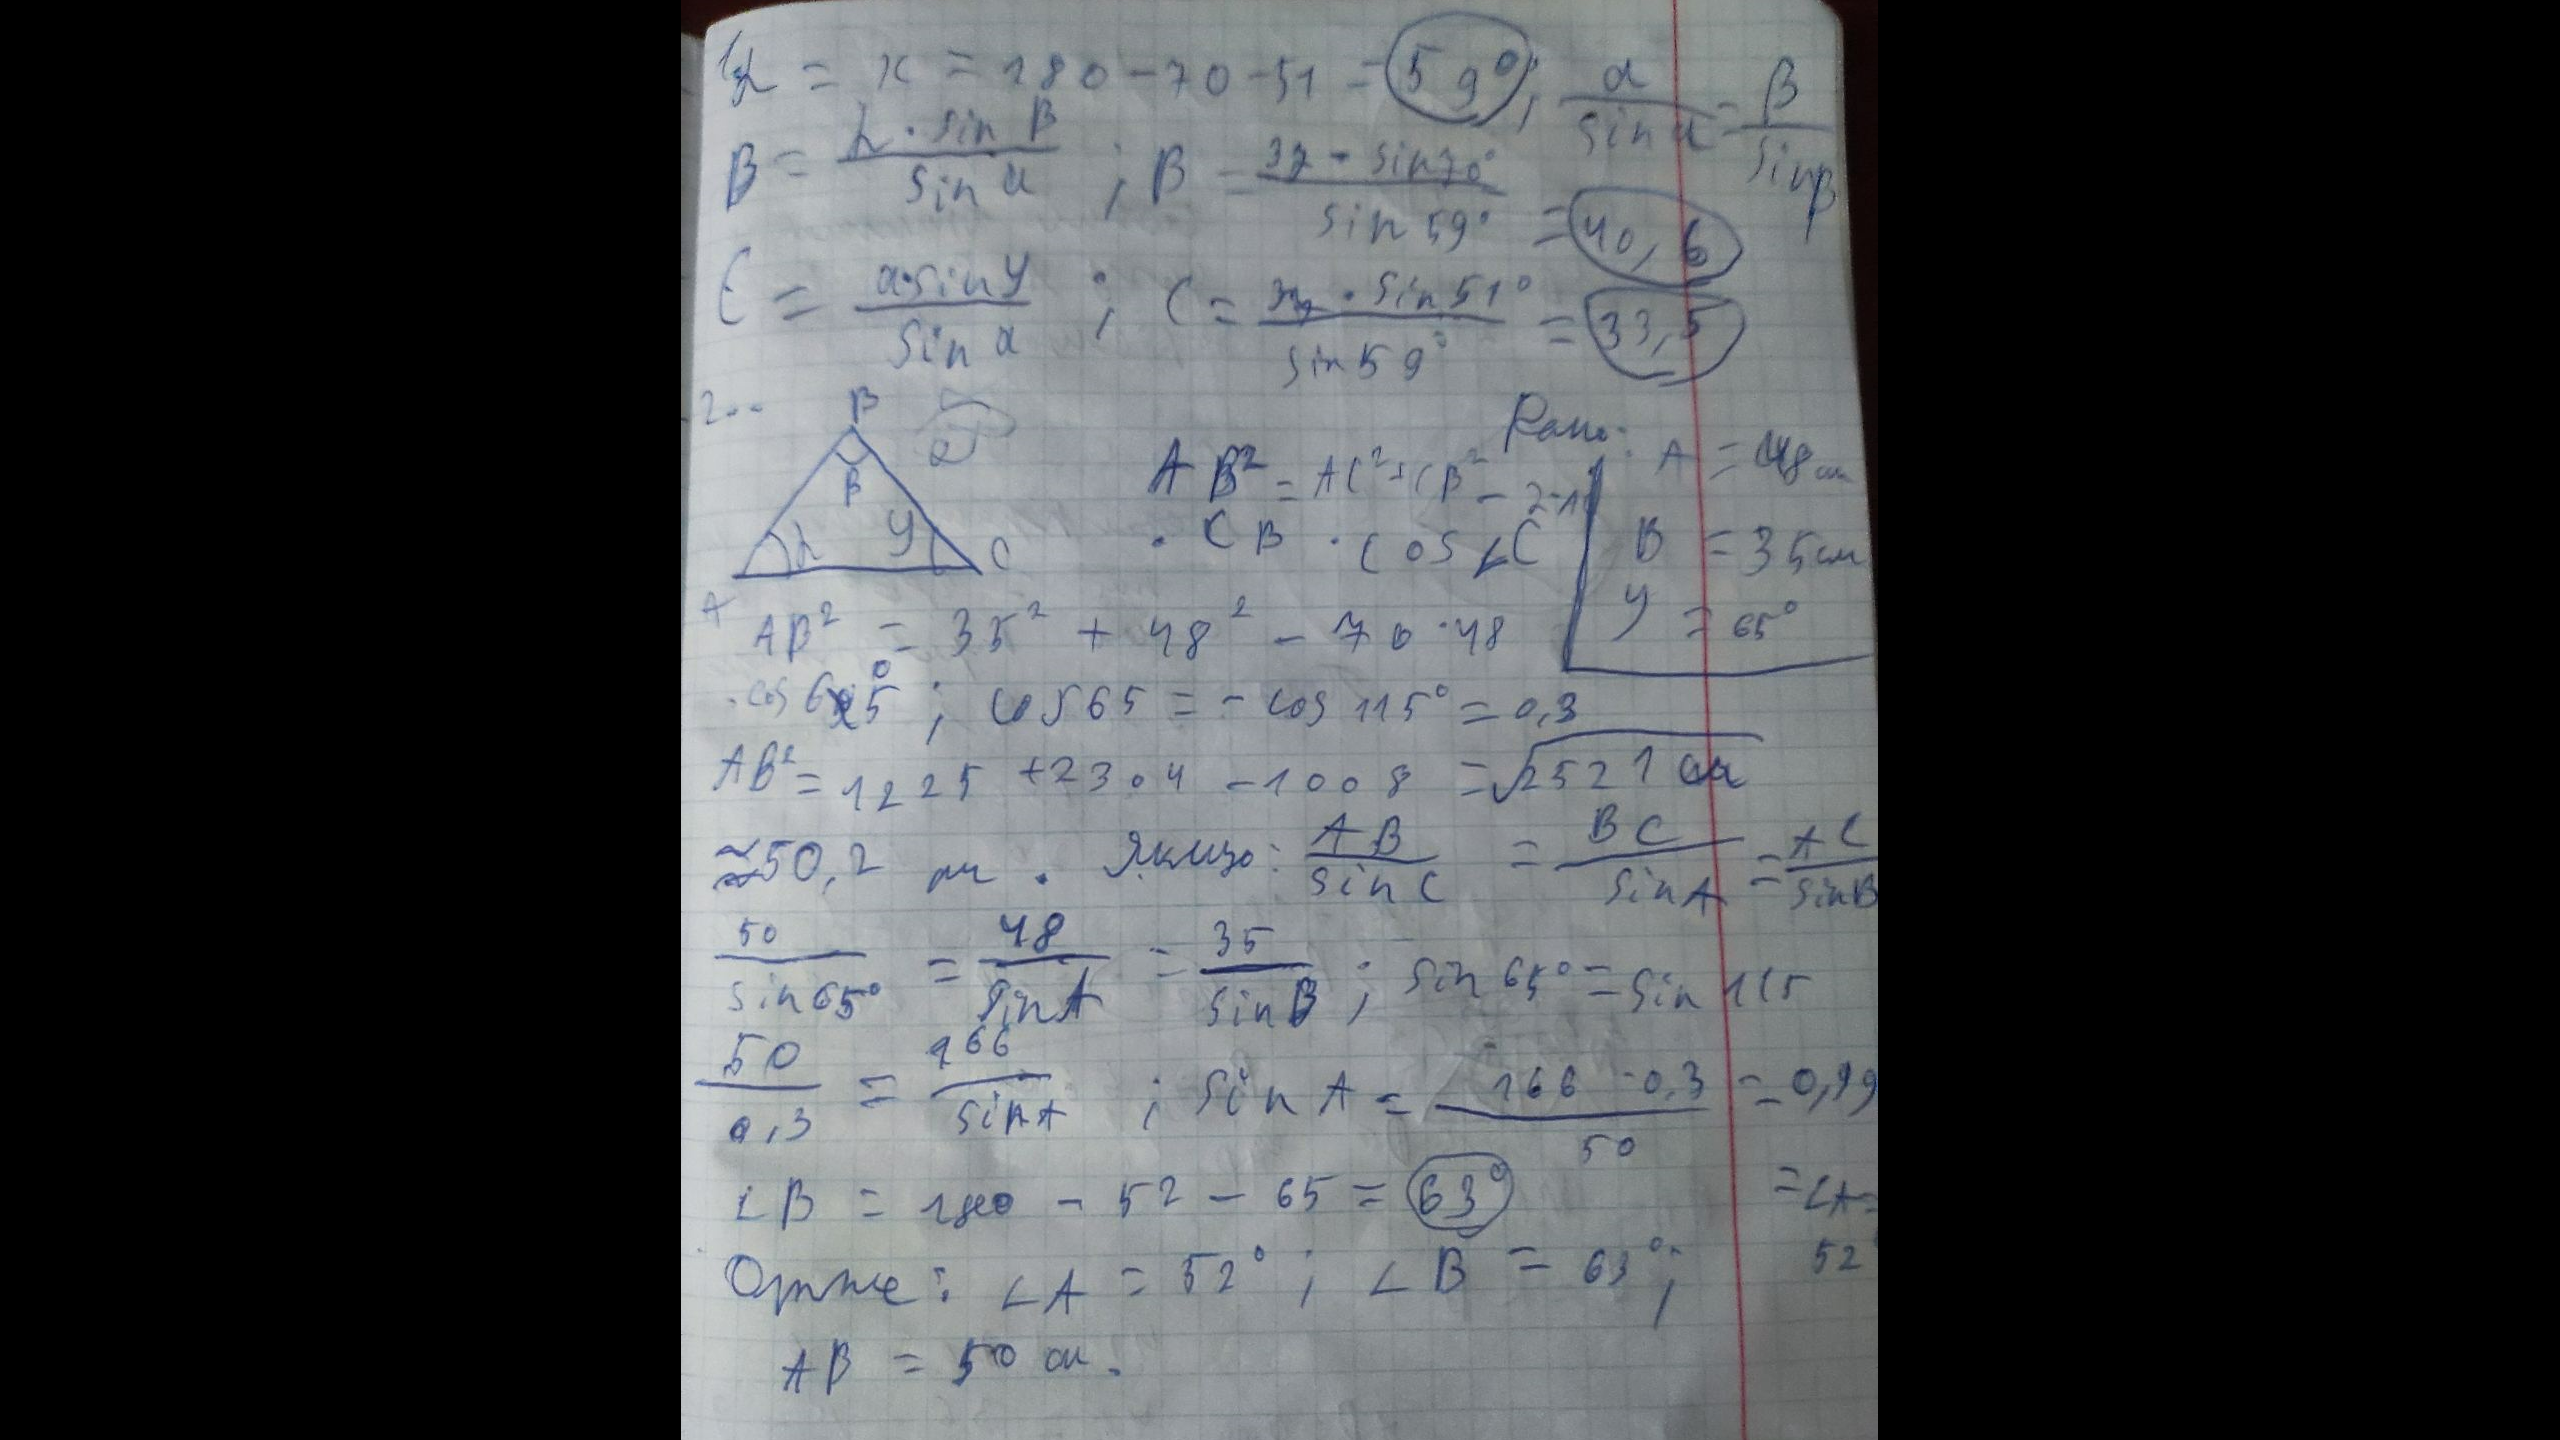 α = x = 180 - 70 - 51 = 59°; α/sin α = β/sin β
B = α · sin β / sin α ; B = 37 · sin 70° / sin 59° = 40,6
C = a · sin y / sin α ; C = 37 · sin 51° / sin 59° = 33,5
2..
B
β
α y
A C
A = 48 см
B = 35 см
y = 65°
AB² = AC² + CB² - 2 · AC
· CB · cos ∠C
AB² = 35² + 48² - 70 · 48
· cos 65° ; cos 65 = - cos 115° = 0,3
AB² = 1225 + 2304 - 1008 = √2521 см
≈ 50,2 см . Якщо: AB/sin C = BC/sin A = AC/sin B
50/sin 65° = 48/sin A = 35/sin B ; sin 65° = sin 115
50/0,3 = 166/sin A ; sin A = 166 · 0,3 / 50 = 0,99
= ∠A =
52°
∠B = 180 - 52 - 65 = 63°
Отже: ∠A = 52° ; ∠B = 63° ;
AB = 50 см.